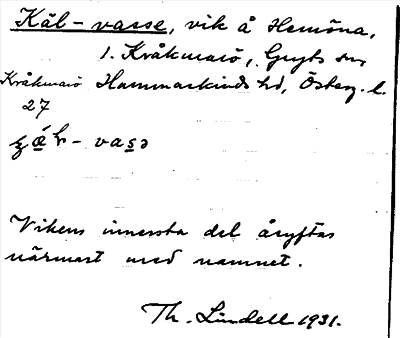 Käl-vasse, vik å Hemöna,
1. Kråkmarö, Gryts sn,
Kråkmarö Hammarkinds hd, Österg. l.
27
- vasə
Vikens innersta del åsyftas
närmast med namnet.
Th. Lindell 1931.